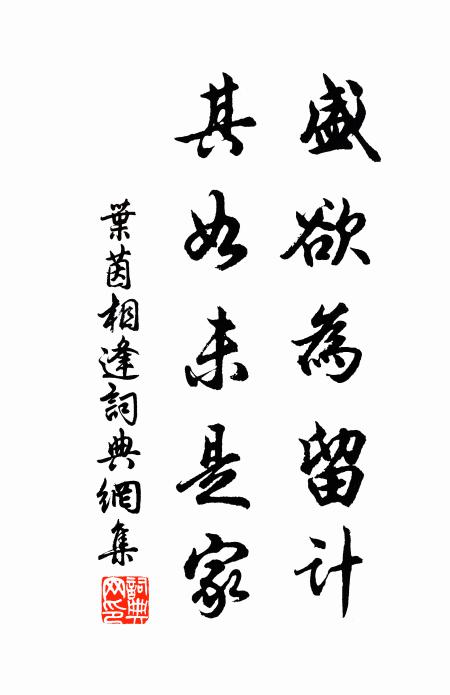 盛欲為留计
其如未是家
葉茵相逢詞典網集
詞典网印